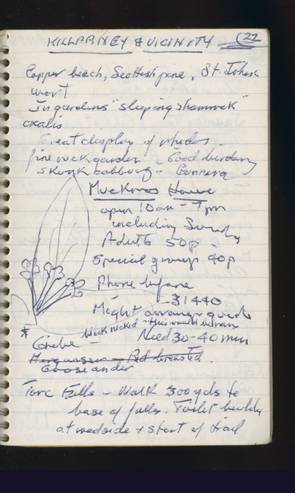 KILLARNEY & VICINITY (27
Copper beach, Scottish pine, St. Johns
wort
In gardens "sleeping shamrock"
oxalis
Great display of rhodos.
fine rock garden - Good birding
skunk cabbage - Gunnera
Muckross House
open 10am - 7pm
including Sunday
Adults 50p -
Special groups 40p
Phone before
- 31440
Might arrange guide
Need 30-40 min
Grebe
Merganser - Red-breasted
Goosander
Torc Falls - Walk 300 yds to
base of falls. Toilet building
at roadside & start of trail